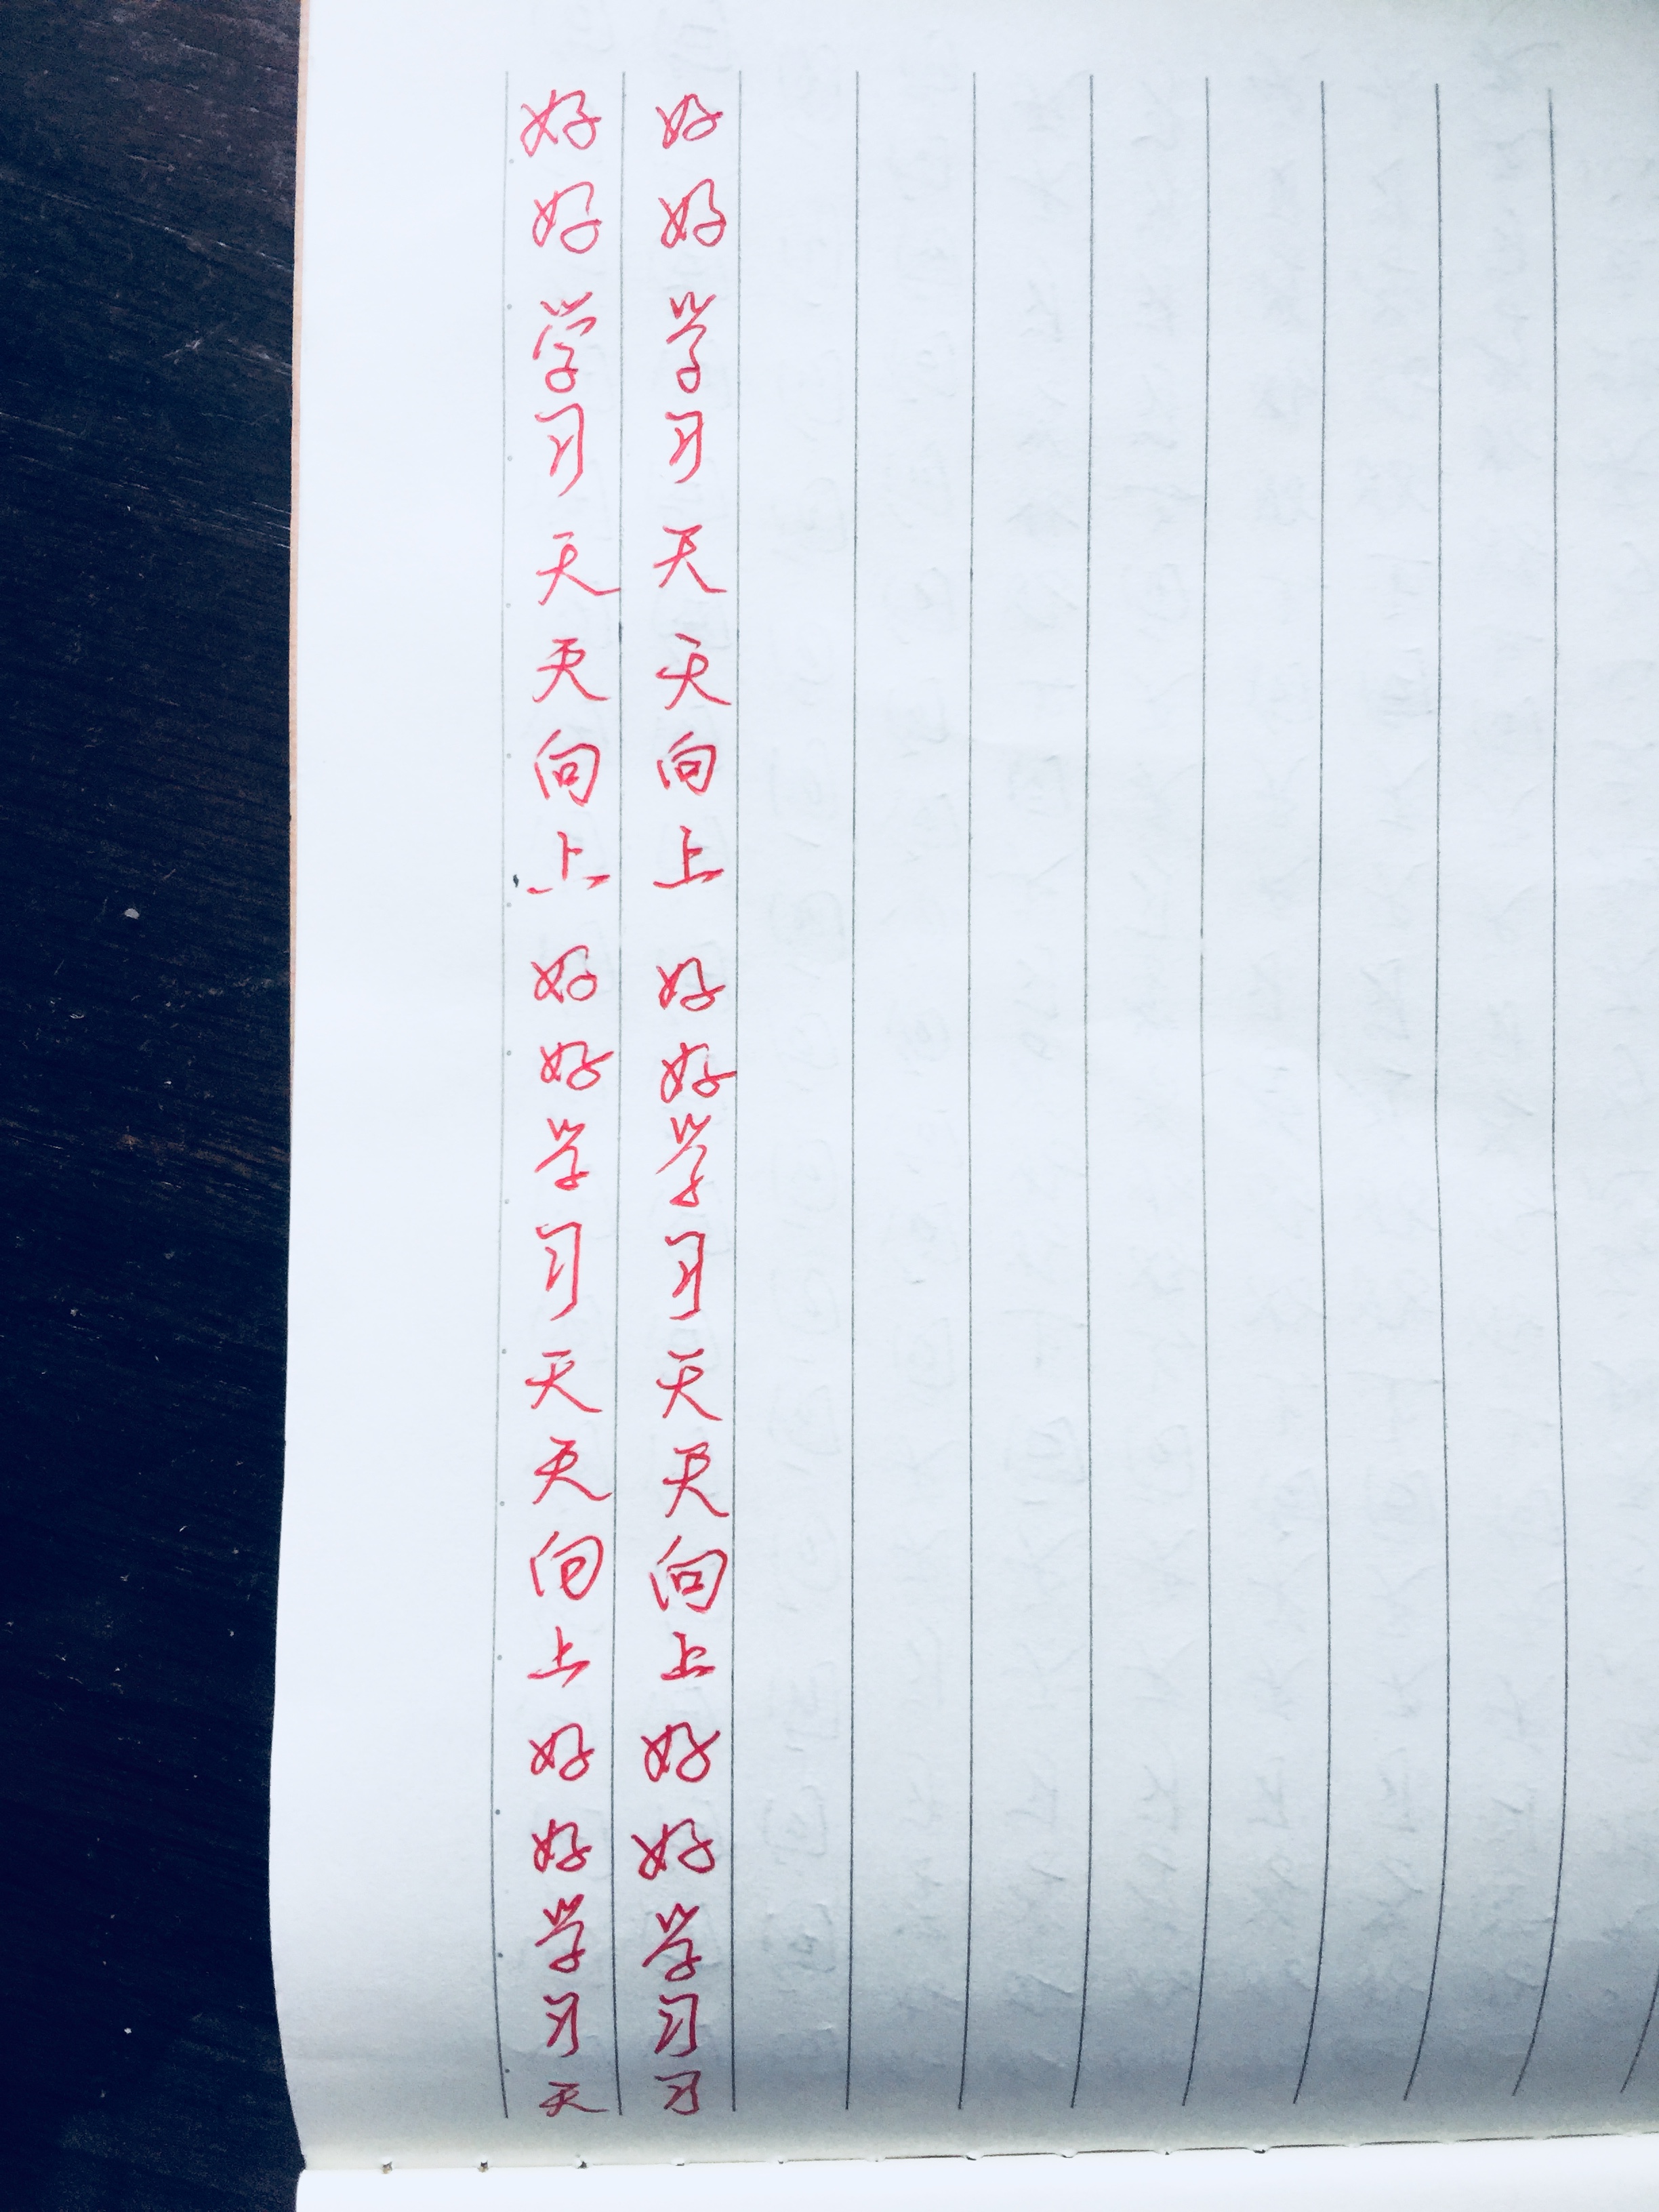 好好学习天天向上好好学习天天向上好好学习天
好好学习天天向上好好学习天天向上好好学习习